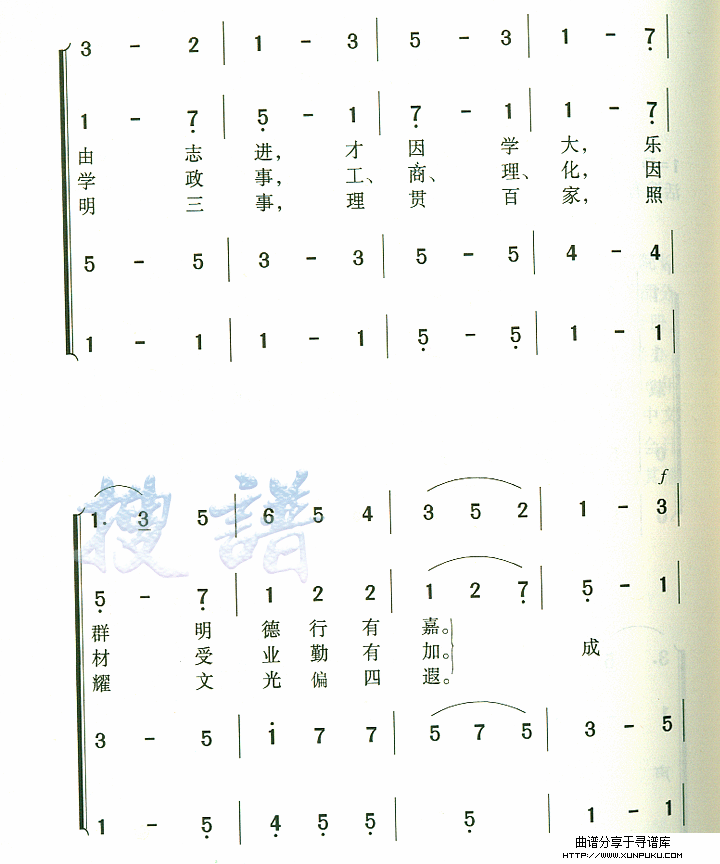 3 - 2 | 1 - 3 | 5 - 3 | 1 - 7 |
1 - 7 | 5 - 1 | 7 - 1 | 1 - 7 |
由 志 进， 才 因 学 大， 乐
学 政 事， 工、 商、 理、 化， 因
明 三 事， 理 贯 百 家， 照
5 - 5 | 3 - 3 | 5 - 5 | 4 - 4 |
1 - 1 | 1 - 1 | 5 - 5 | 1 - 1 |
搜谱
f
1. 3 5 | 6 5 4 | 3 5 2 | 1 - 3 |
5 - 7 | 1 2 2 | 1 2 7 | 5 - 1 |
群 明 德 行 有 嘉。
材 受 业 勤 有 加。 成
耀 文 光 偏 四 遐。
3 - 5 | 1 7 7 | 5 7 5 | 3 - 5 |
1 - 5 | 4 5 5 | 5 | 1 - 1 |
曲谱分享于寻谱库
HTTP://WWW.XUNPUKU.COM